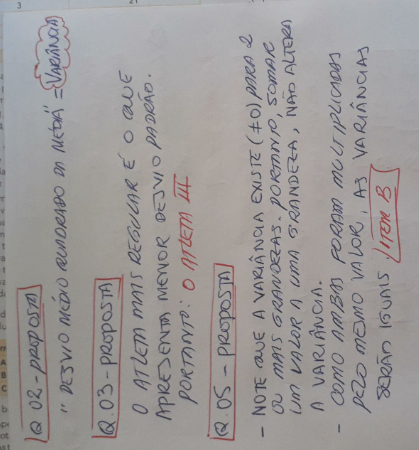 Q.02 - PROPOSTA
" DESVIO MÉDIO QUADRADO DA MÉDIA" = VARIÂNCIA
Q.03 - PROPOSTA
O ATLETA MAIS REGULAR É O QUE
APRESENTA MENOR DESVIO PADRÃO.
PORTANTO: O ATLETA III
Q.05 - PROPOSTA
- NOTE QUE A VARIÂNCIA EXISTE (≠0) PARA 2
OU MAIS GRANDEZAS. PORTANTO, SOMAR
UM VALOR A UMA GRANDEZA, NÃO ALTERA
A VARIÂNCIA.
- COMO AMBAS FORAM MULTIPLICADAS
PELO MESMO VALOR, AS VARIÂNCIAS
SERÃO IGUAIS ITEM B